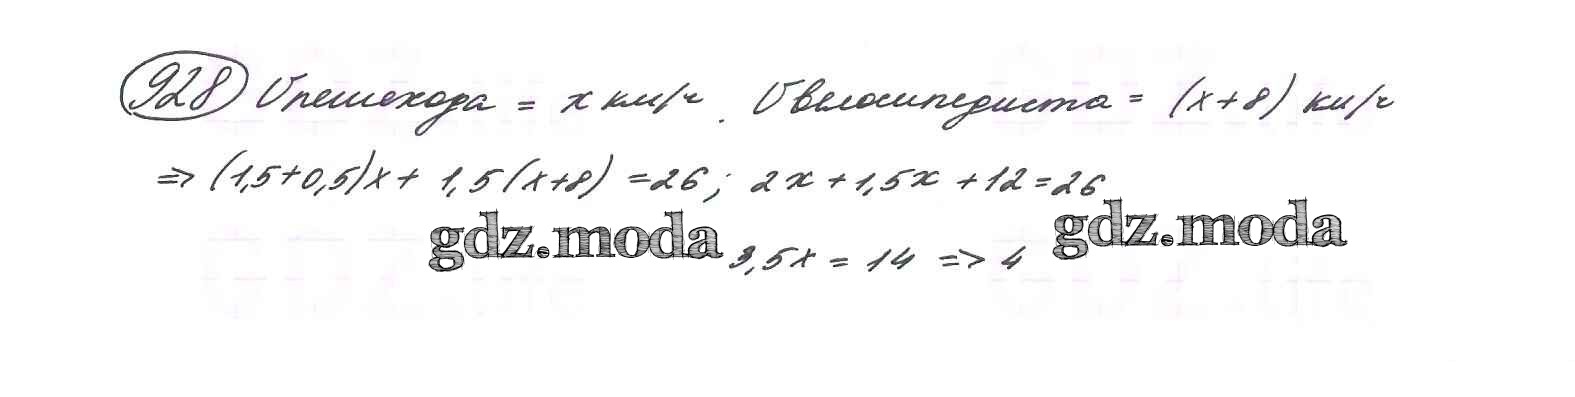 928 Vпешехода = x км/ч. Vвелосипедиста = (x+8) км/ч
=> (1,5+0,5)x + 1,5(x+8) = 26; 2x + 1,5x + 12 = 26
gdz.moda 3,5x = 14 => 4 gdz.moda